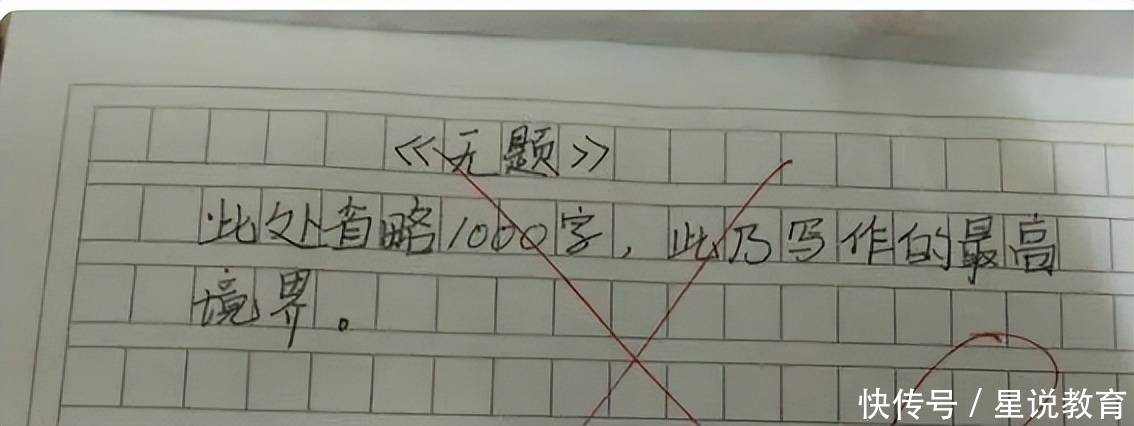 《无题》
此处省略1000字，此乃写作的最高
境界。
快传号 / 星说教育